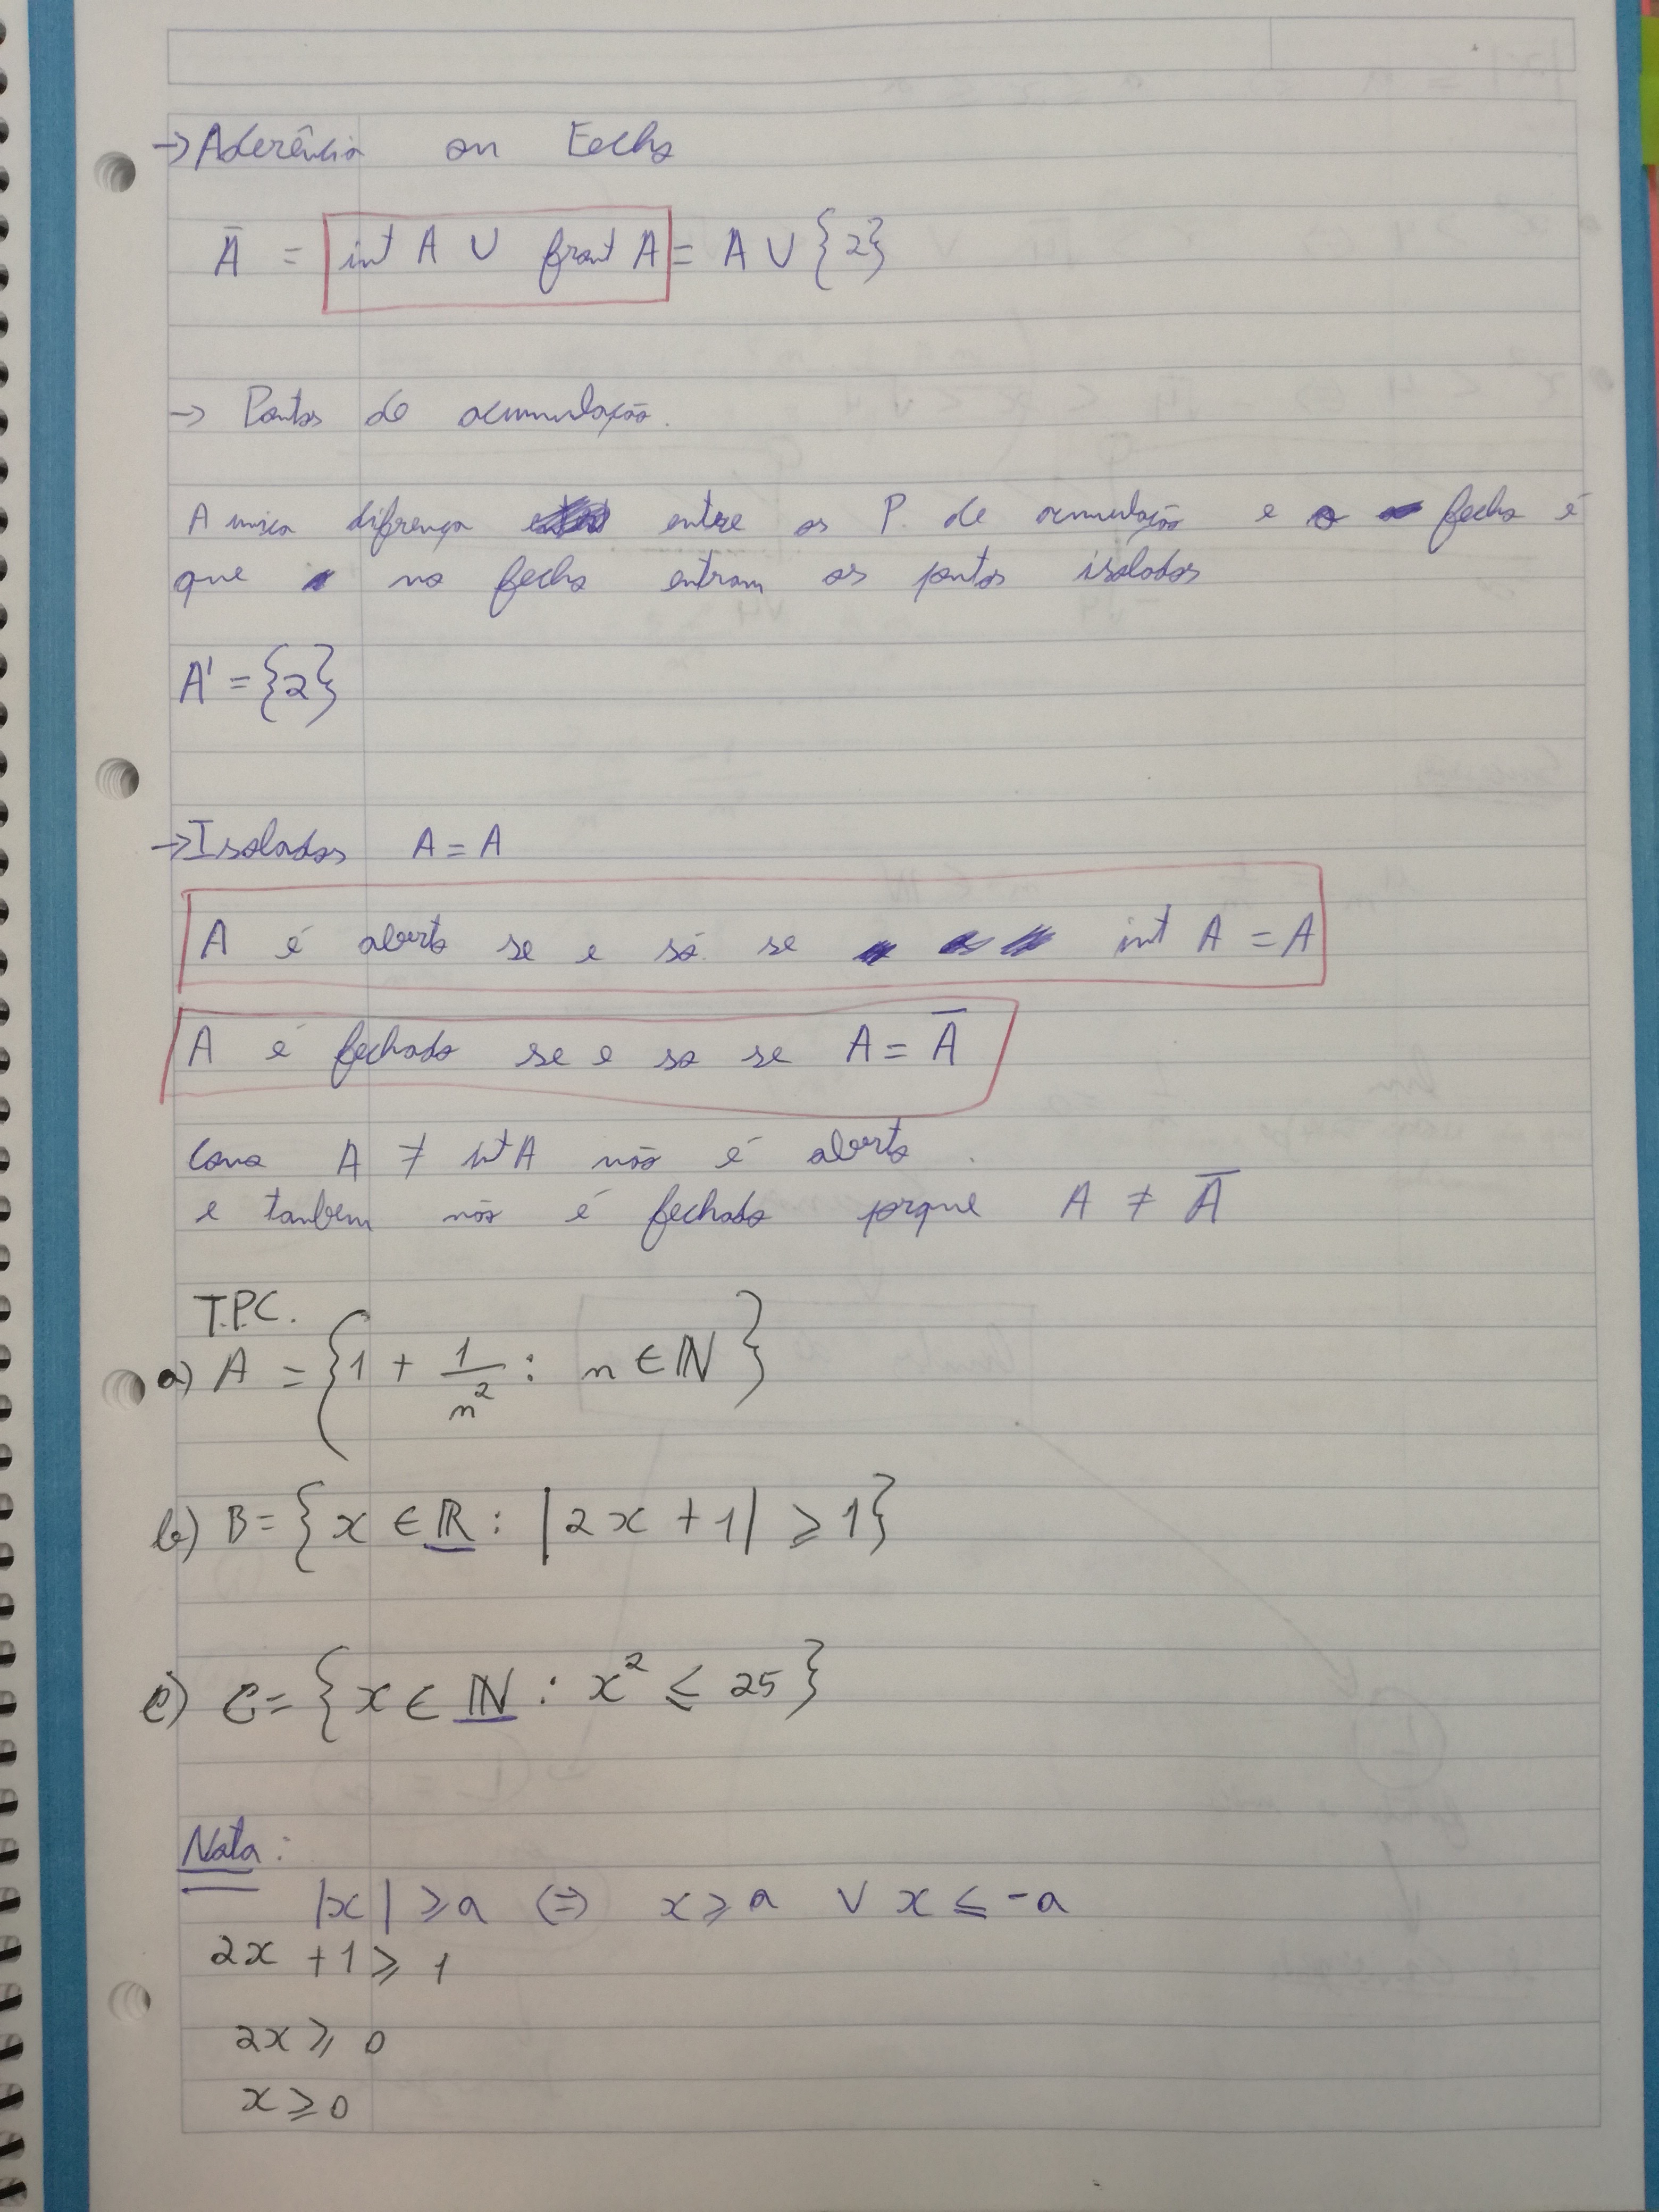 → Aderência ou Fecho
Ā = int A ∪ front A = A ∪ {2}
→ Pontos de acumulação.
A unica difrença entre os P. de acumulação e o fecho é
que no fecho entram os pontos isolados
A' = {2}
→ Isolados A = A
A é aberto se e só se int A = A
A é fechado se e so se A = Ā
Como A ≠ int A não é aberto.
e tambem não é fechado porque A ≠ Ā
T.P.C.
a) A = {1 + 1/n² : n ∈ ℕ}
b) B = {x ∈ ℝ : |2x + 1| ≥ 1}
c) C = {x ∈ ℕ : x² ≤ 25}
Nota:
|x| ≥ a ⇔ x ≥ a ∨ x ≤ -a
2x + 1 ≥ 1
2x ≥ 0
x ≥ 0